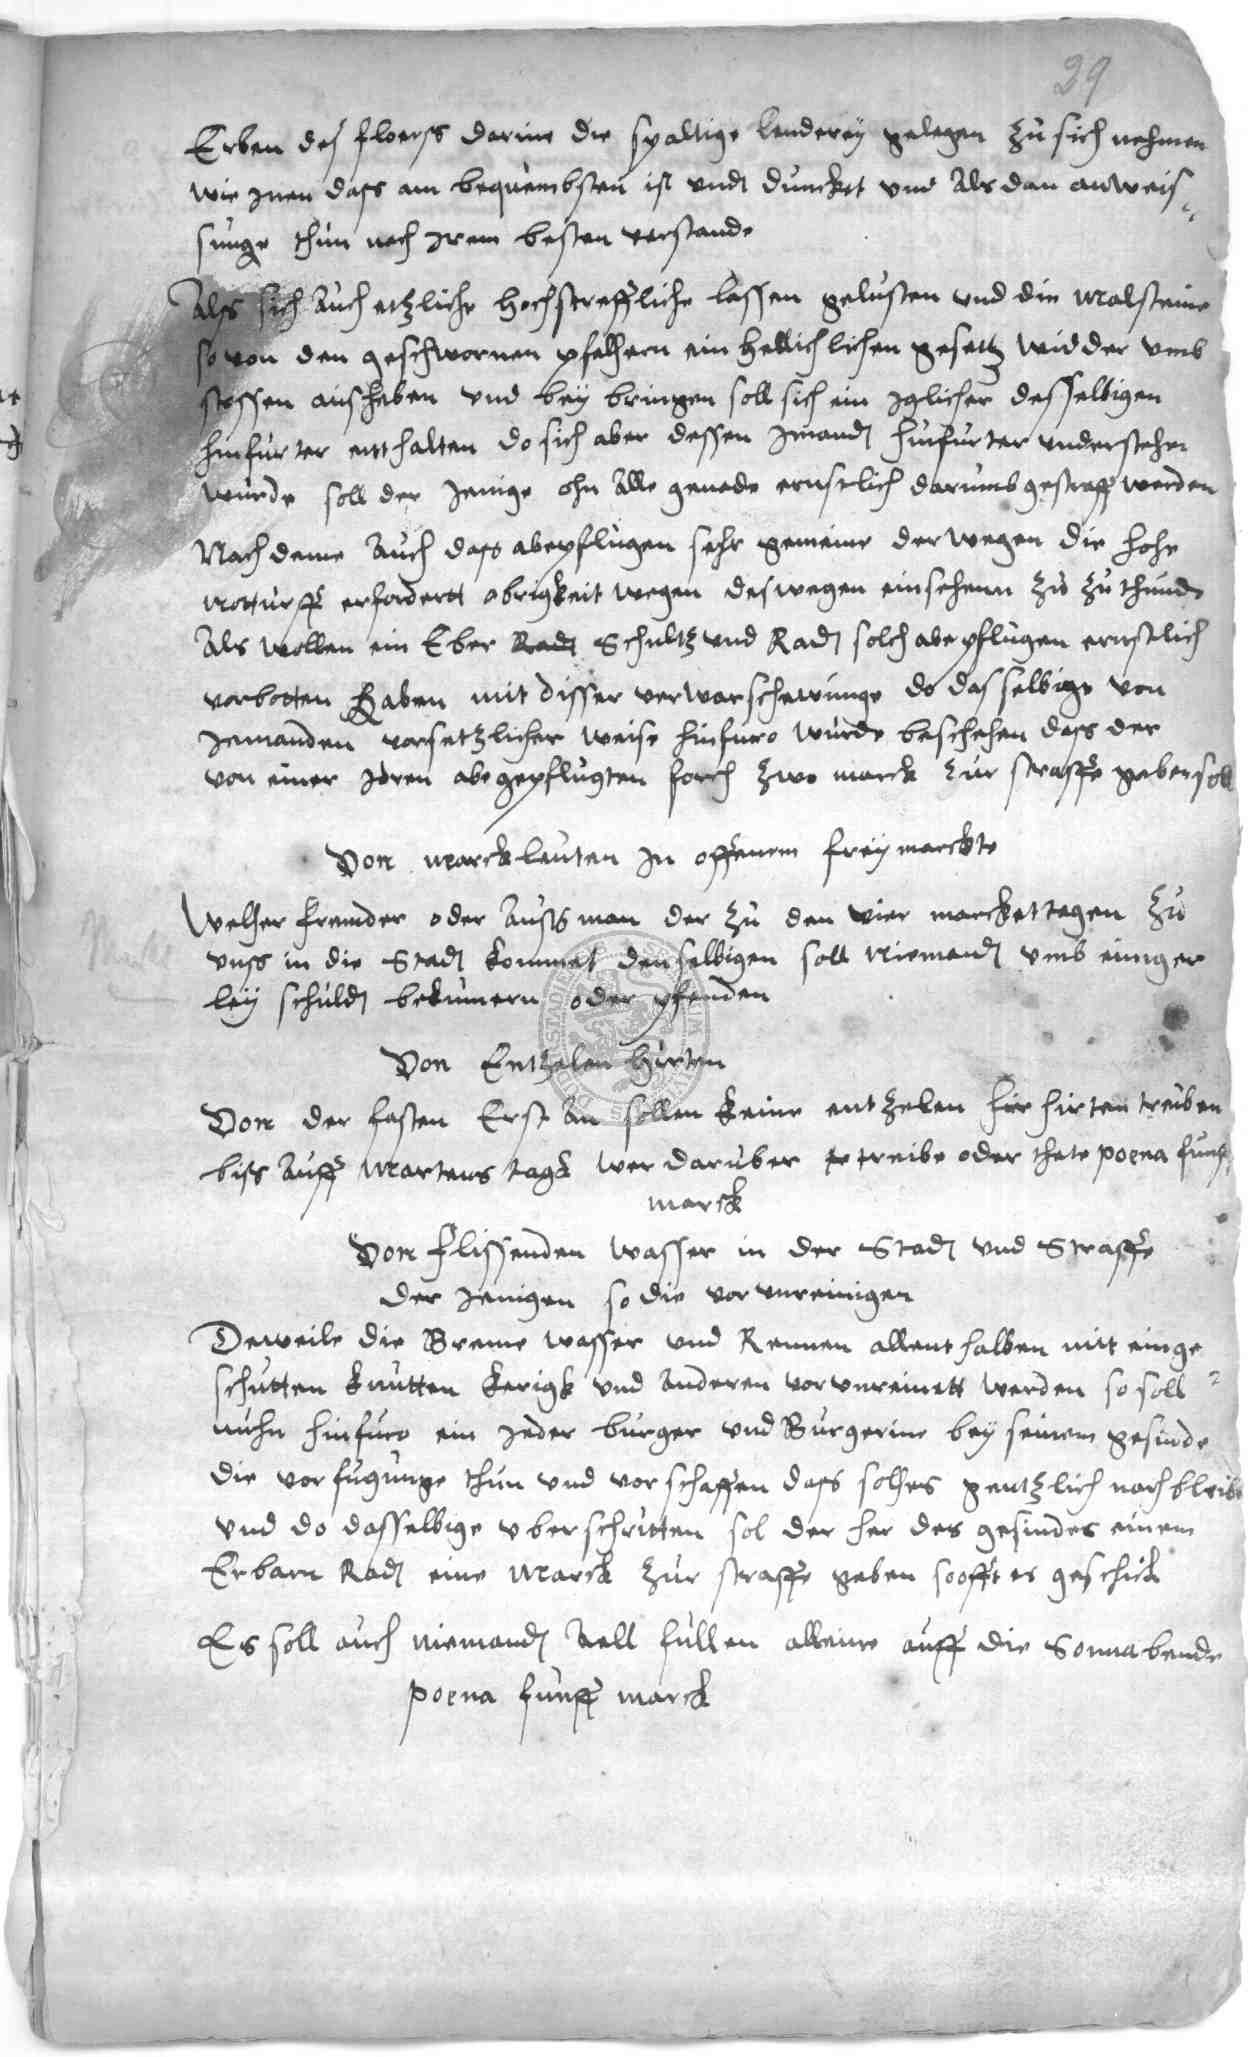 29
Erben des floerss darine die spaltige lenderey gelegen zu sich nehmen
wie Inen dass am bequembsten ist und dunckt und Als dan anweis¬
sunge thun nach Irem besten verstande
Alss sich Auch etzliche hochstreffliche lassen gelusten und die Malsteine
so von den geschwornen pfelhern ein hellichlichen gesetz widder umb
stossen aussheben und bey bringen soll sich ein Iglicher desselbigen
hinfurter entthalten do sich aber dessen Imands hinfurter understehen
wurde soll der Jenige ohn Alle genade ernstlich darumb gestrafft werden
Nach deme Auch dass abepflugen sehr gemeine derwegen die hohe
notturfft erfordertt obrigkeit wegen deswegen einsehenn zu zu thunde
Als wollen ein Erber Rads Schultz und Rads solch abepflugen ernstlich
vorbotten haben mit disser verwarschawunge do dasselbige von
Jemanden vorsetzlicher weise hinfuro wurde beschehen dass der
von einer Idren abegepflugten forch zwo marck zur straffe geben soll
Von Marckleuten In offenem freymarckte
Welher fremder oder Aussman der zu den vier marckettagen zu
unss in die Stads kommet denselbigen soll Niemands umb einiger
ley schulds bekumern oder pfenden
Von Entzelen hirten
Von der fasten Erst An sollen keine entzelen hir hirten treiben
biss Auff Martens tagk wer daruber tr treibe oder thete poena funff
marck
Von flissenden wasser in der Stads und Straffe
der Jenigen so die vorunreinigen
Deweile die Breme wasser und Rennen allenthalben mit einge
schutten knutten kerigk und Anderen vorunreinett werden so soll
nuhn hinfuro ein Jeder burger und Burgerine bey seinem gesinde
die vorfugunge thun und vorschaffen dass solhes gentzlich nachbleibe
und do dasselbige uberschritten sol der her des gesindes einem
Erbarn Rads eine Marck zur straffe geben soofft es geschick
Es soll auch niemands Aell fullen alleine auff die Sonnabende
poena funff marck